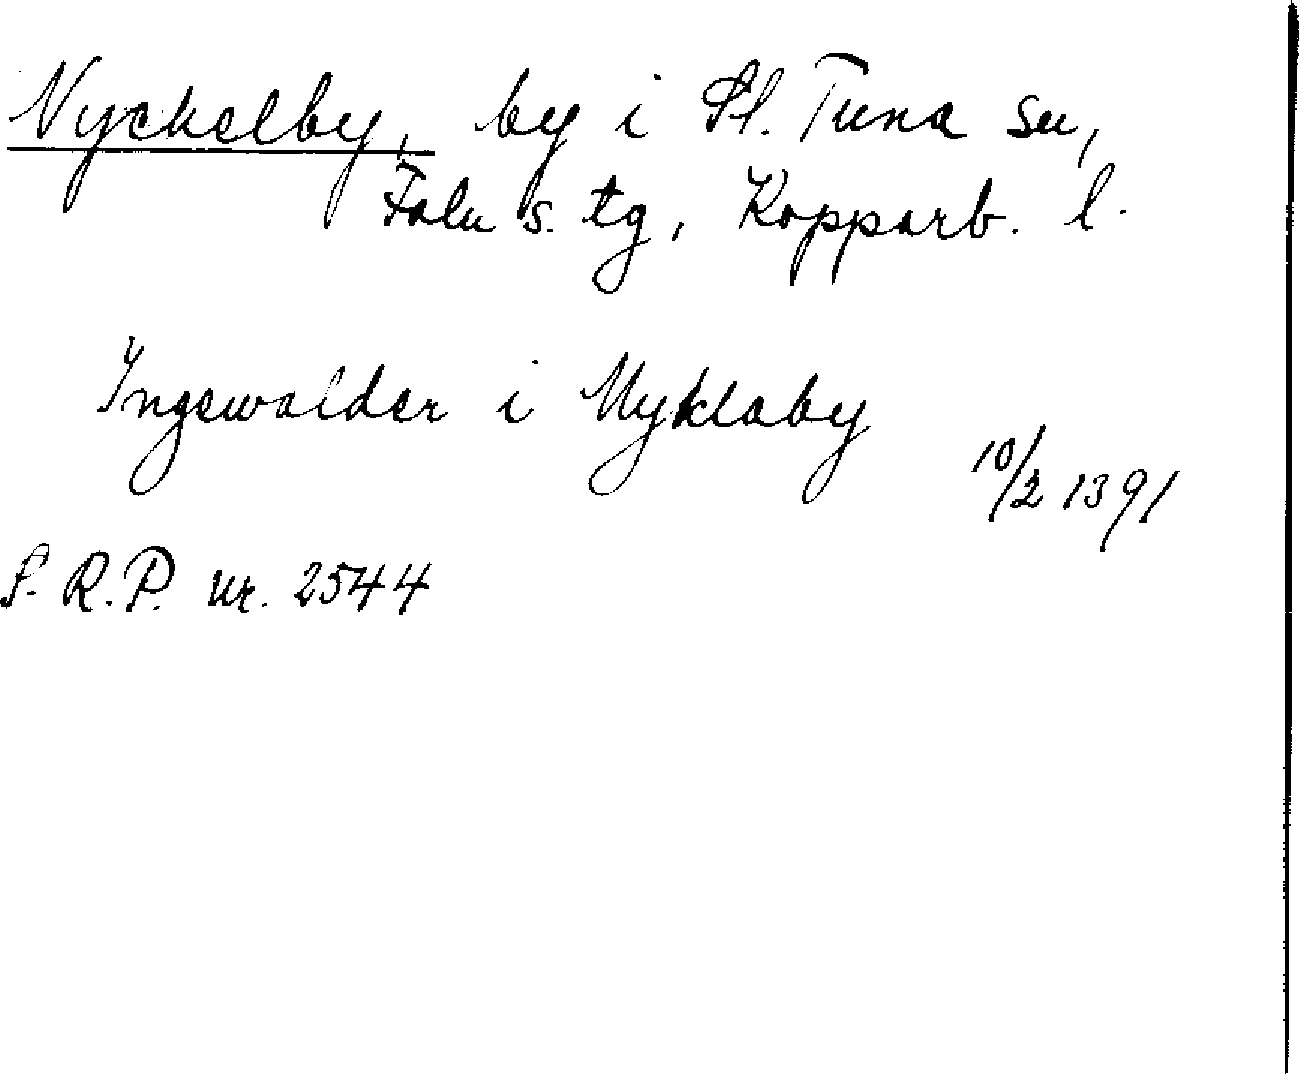 Nyckelby, by i St. Tuna sn,
Falu s. tg, Kopparb. l.
Ingewalder i Nyklaby
10/2 1391
S. R. P. nr. 2544